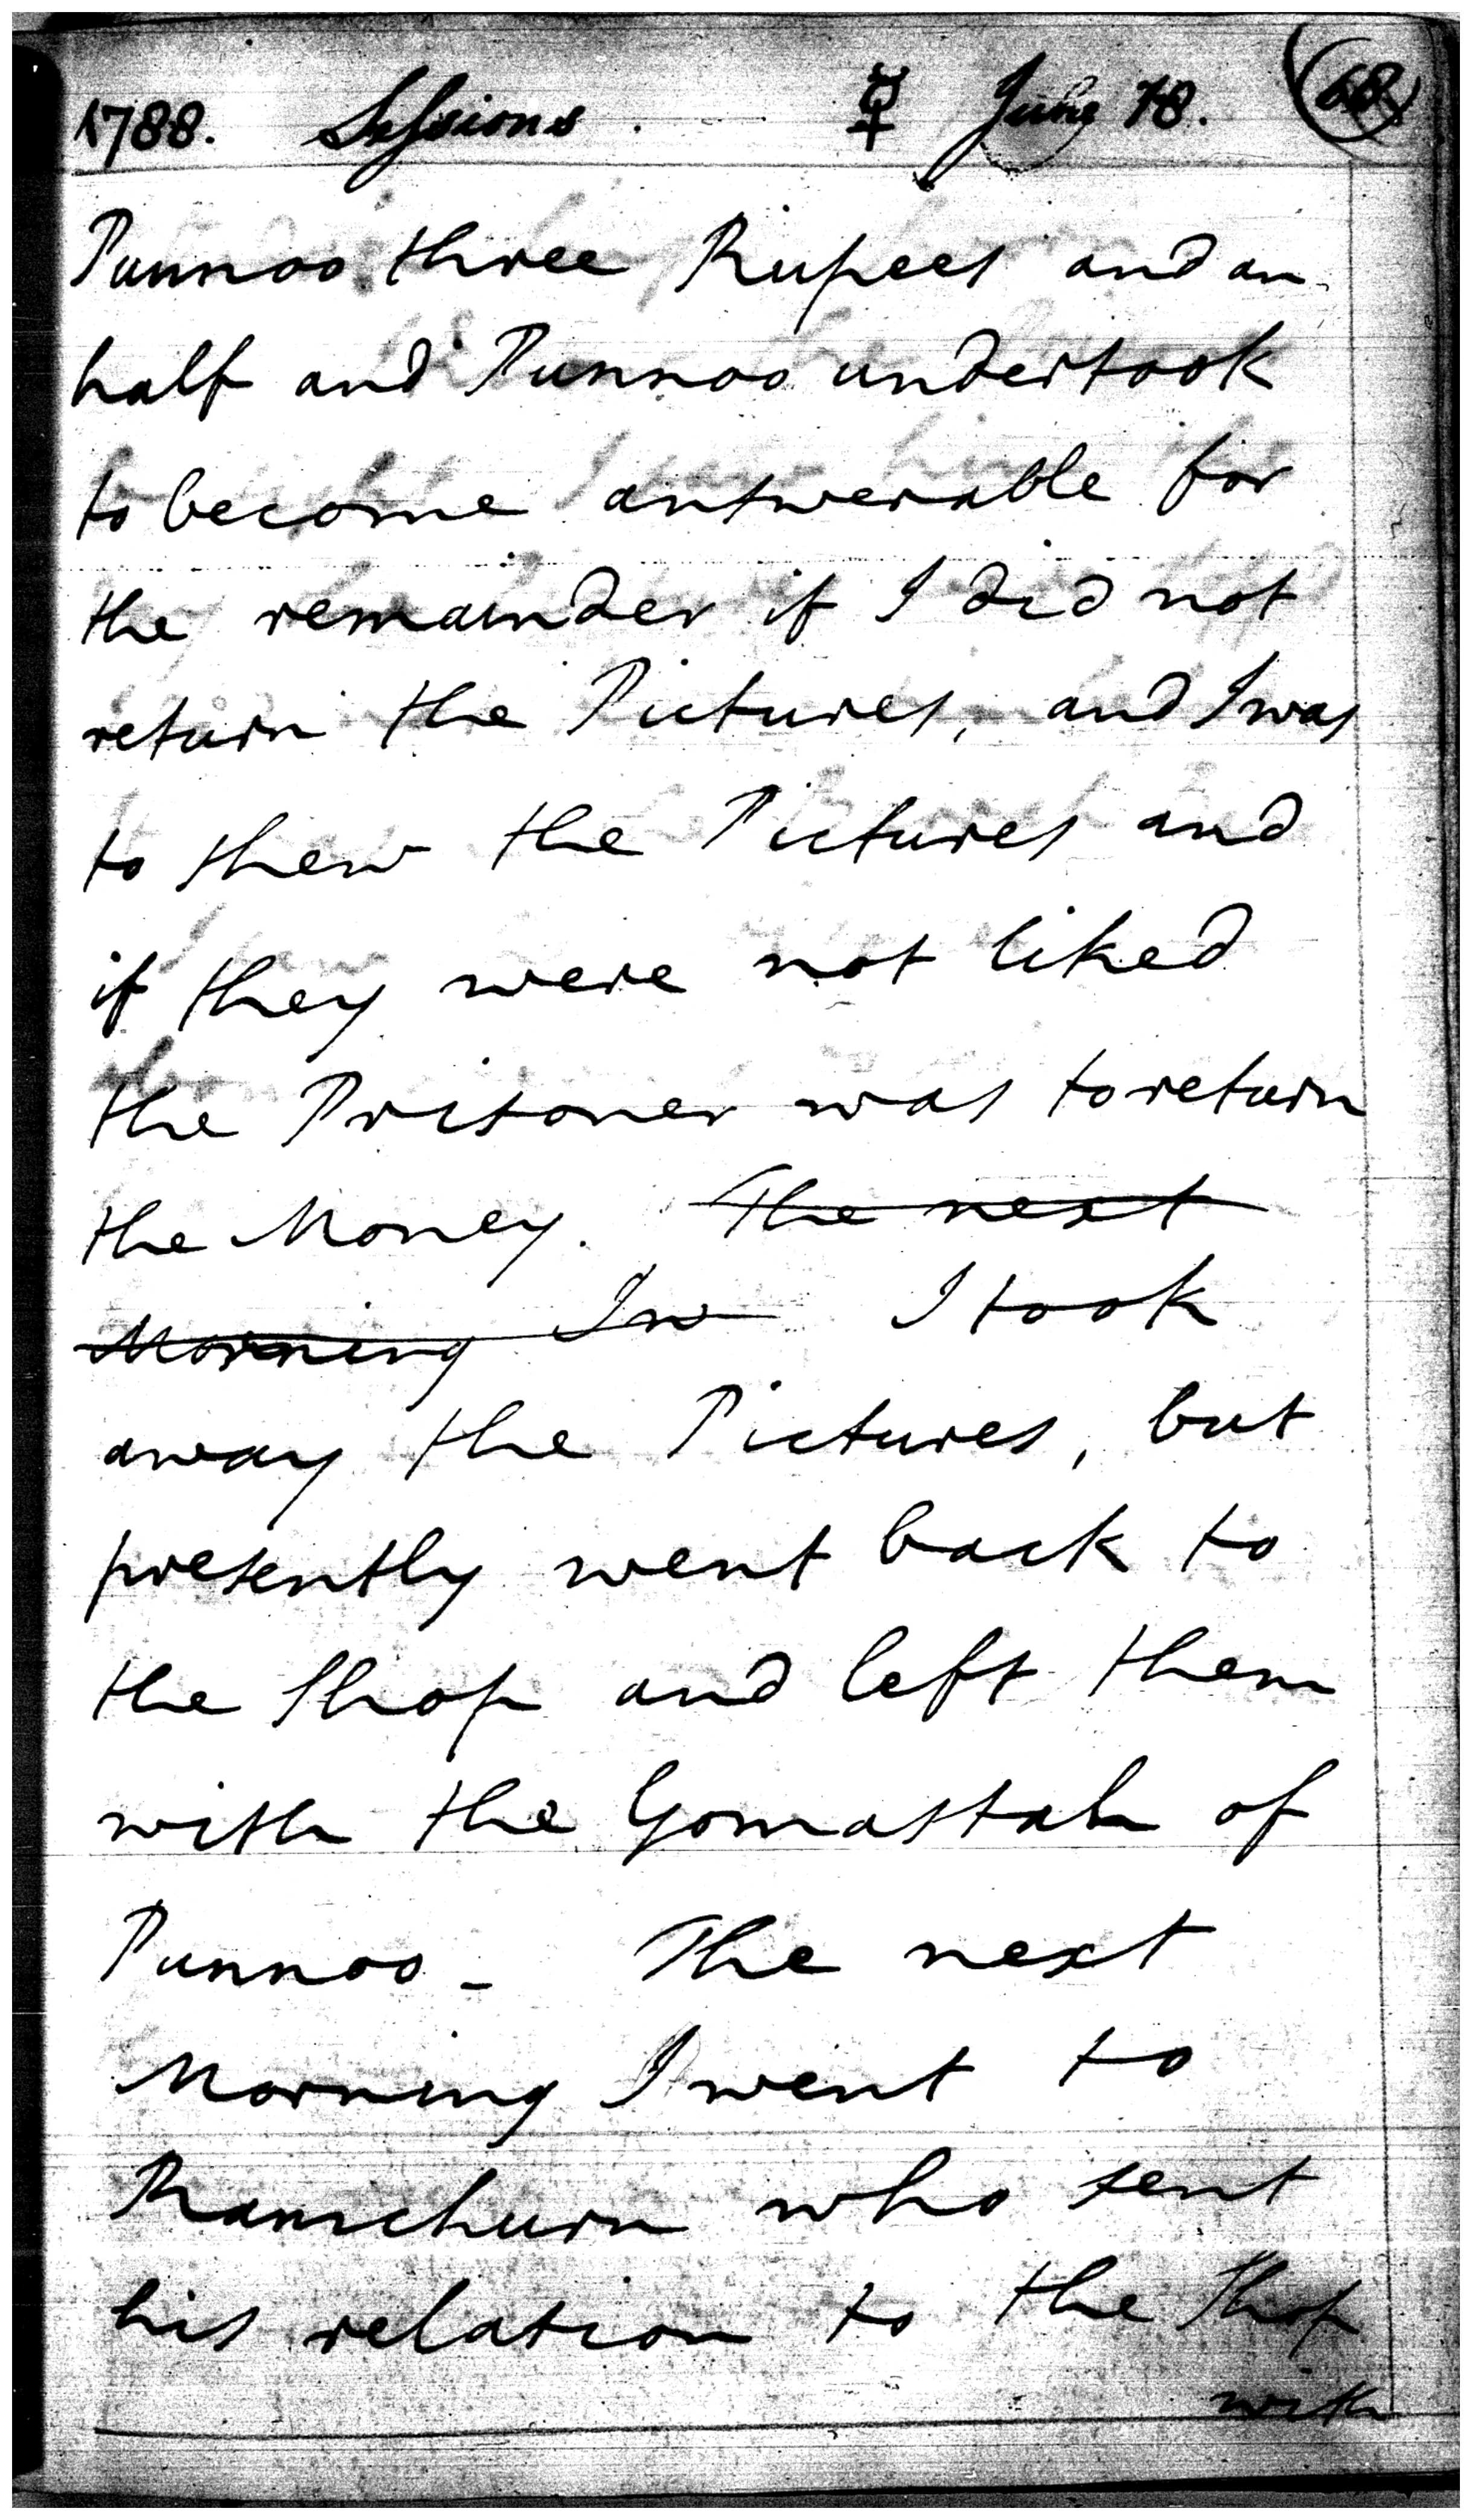 1788. Sessions. ☿ June 18. 68
Punnoo three Rupees and an
half and Punnoo undertook
to become answerable for
the remainder if I did not
return the Pictures, and I was
to shew the Pictures and
if they were not liked
the Prisoner was to return
the Money. The next
Morning I w I took
away the Pictures, but
presently went back to
the Shop and left them
with the Gomastah of
Punnoo - The next
Morning I went to
Ramchurn who sent
his relation to the Shop
with